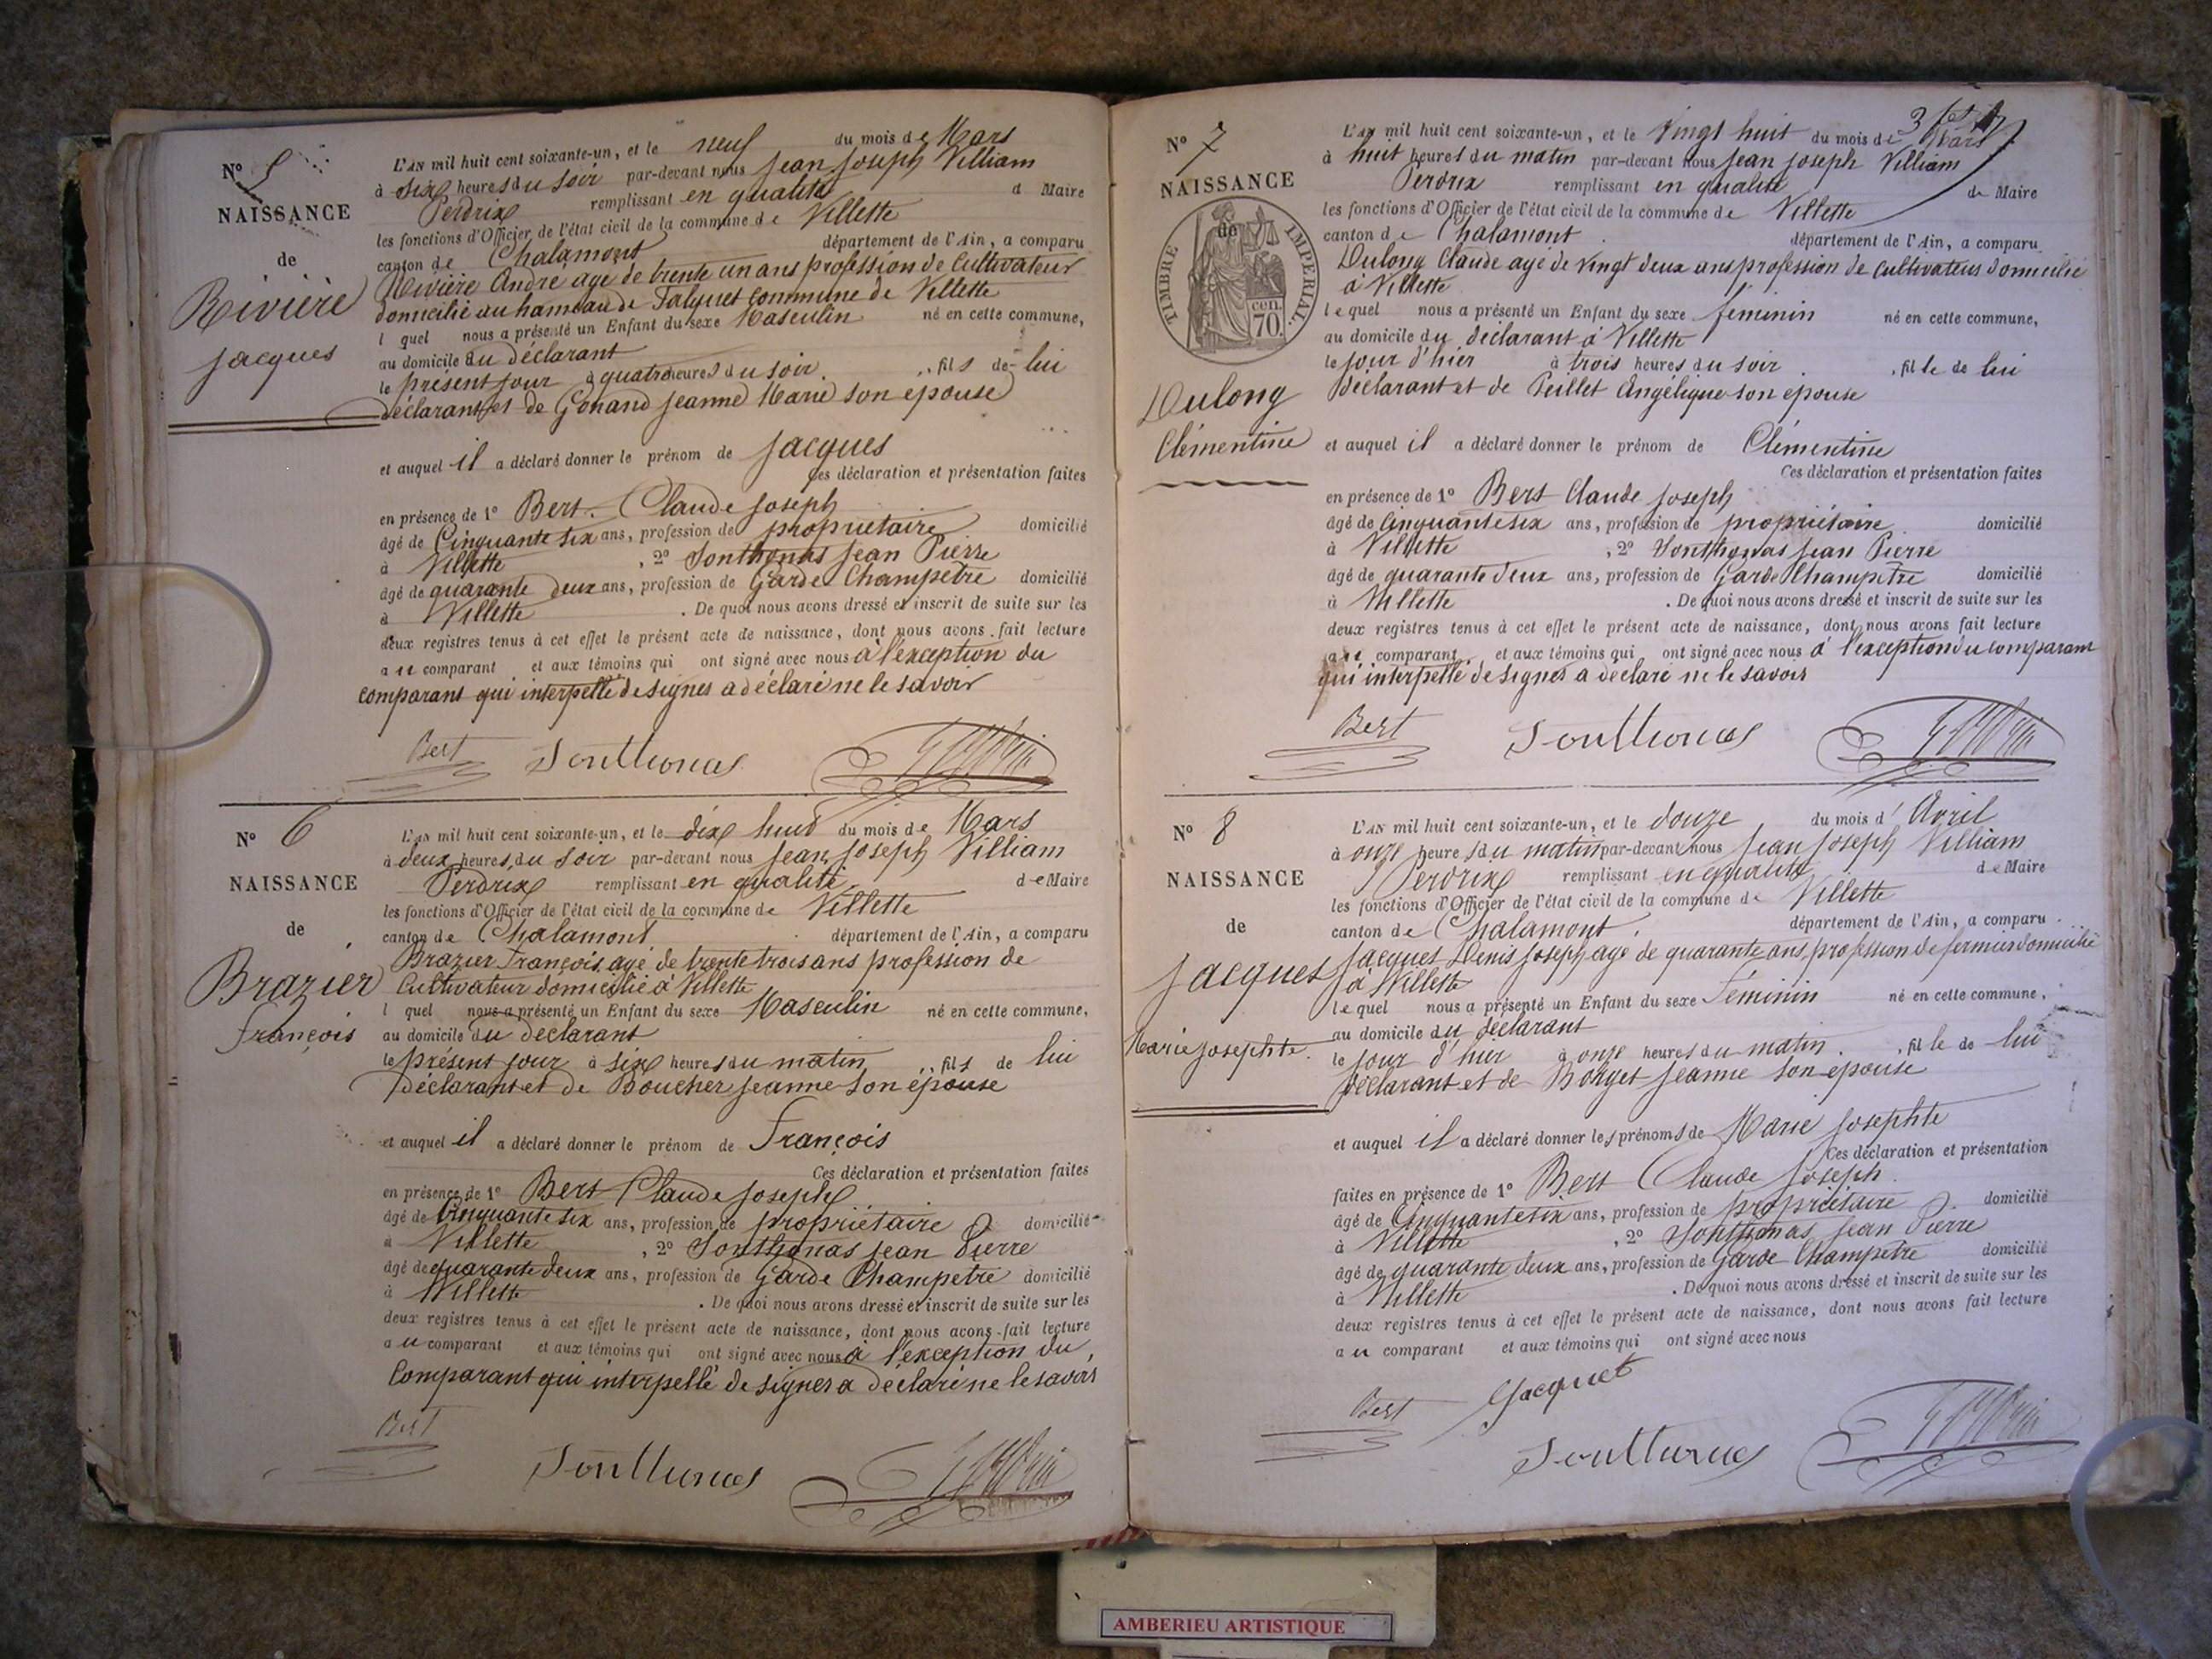 N° 5
NAISSANCE
de
Rivière
Jacques
L'AN mil huit cent soixante-un, et le neuf du mois de Mars
à six heures du soir par-devant nous Jean Joseph Villiam
Perdrix remplissant en qualité d Maire
les fonctions d'Officier de l'état civil de la commune de Villette
canton de Chalamont département de l'Ain, a comparu
Rivière André agé de trente un ans profession de Cultivateur
domicilié au hameau de Falquet commune de Villette
l quel nous a présenté un Enfant du sexe Masculin né en cette commune,
au domicile du déclarant
le présent jour à quatre heures du soir, fils de lui
déclarant et de Gonand Jeanne Marie son épouse
et auquel il a déclaré donner le prénom de Jacques
Ces déclaration et présentation faites
en présence de 1° Bert Claude Joseph
âgé de Cinquante six ans, profession de propriétaire domicilié
à Villette, 2° Sonthonas Jean Pierre
âgé de quarante deux ans, profession de Garde Champetre domicilié
à Villette. De quoi nous avons dressé et inscrit de suite sur les
deux registres tenus à cet effet le présent acte de naissance, dont nous avons fait lecture
au comparant et aux témoins qui ont signé avec nous à l'exception du
comparant qui interpellé de signer a déclaré ne le savoir
Bert Sonthonas
N° 6
NAISSANCE
de
Brazier
François
L'AN mil huit cent soixante-un, et le dix huit du mois de Mars
à deux heures du soir par-devant nous Jean Joseph Villiam
Perdrix remplissant en qualité de Maire
les fonctions d'Officier de l'état civil de la commune de Villette
canton de Chalamont département de l'Ain, a comparu
Brazier François agé de trente trois ans profession de
Cultivateur domicilié à Villette
l quel nous a présenté un Enfant du sexe Masculin né en cette commune,
au domicile du déclarant
le présent jour à six heures du matin, fils de lui
déclarant et de Boucher Jeanne son épouse
et auquel il a déclaré donner le prénom de François
Ces déclaration et présentation faites
en présence de 1° Bert Claude Joseph
âgé de Cinquante six ans, profession de propriétaire domicilié
à Villette, 2° Sonthonas Jean Pierre
âgé de quarante deux ans, profession de Garde Champetre domicilié
à Villette. De quoi nous avons dressé et inscrit de suite sur les
deux registres tenus à cet effet le présent acte de naissance, dont nous avons fait lecture
au comparant et aux témoins qui ont signé avec nous à l'exception du
Comparant qui interpellé de signer a déclaré ne le savoir
Bert
Sonthonas
N° 7
NAISSANCE
de
TIMBRE IMPERIAL.
70 cen.
Dulong
Clémentine
L'AN mil huit cent soixante-un, et le Vingt huit du mois de Mars
à huit heures du matin par-devant nous Jean Joseph Villiam
Perdrix remplissant en qualité de Maire
les fonctions d'Officier de l'état civil de la commune de Villette
canton de Chalamont département de l'Ain, a comparu
Dulong Claude agé de vingt deux ans profession de Cultivateur domicilié
à Villette
lequel nous a présenté un Enfant du sexe féminin né en cette commune,
au domicile du déclarant à Villette
le jour d'hier à trois heures du soir, fille de lui
déclarant et de Peillet Angélique son épouse
et auquel il a déclaré donner le prénom de Clémentine
Ces déclaration et présentation faites
en présence de 1° Bert Claude Joseph
âgé de Cinquante six ans, profession de propriétaire domicilié
à Villette, 2° Sonthonas Jean Pierre
âgé de quarante deux ans, profession de Garde Champetre domicilié
à Villette. De quoi nous avons dressé et inscrit de suite sur les
deux registres tenus à cet effet le présent acte de naissance, dont nous avons fait lecture
au comparant et aux témoins qui ont signé avec nous à l'exception du comparant
qui interpellé de signer a déclaré ne le savoir
Bert Sonthonas
N° 8
NAISSANCE
de
Jacques
Marie Josephte
L'AN mil huit cent soixante-un, et le douze du mois d'Avril
à onze heures du matin par-devant nous Jean Joseph Villiam
Perdrix remplissant en qualité de Maire
les fonctions d'Officier de l'état civil de la commune de Villette
canton de Chalamont département de l'Ain, a comparu
Jacques Denis Joseph agé de quarante ans, profession de fermier domicilié
à Villette
lequel nous a présenté un Enfant du sexe Féminin né en cette commune,
au domicile du déclarant
le jour d'hier à onze heures du matin, fille de lui
déclarant et de Borget Jeanne son épouse
et auquel il a déclaré donner les prénoms de Marie Josephte
Ces déclaration et présentation
faites en présence de 1° Bert Claude Joseph
âgé de Cinquante six ans, profession de propriétaire domicilié
à Villette, 2° Sonthonas Jean Pierre
âgé de quarante deux ans, profession de Garde Champetre domicilié
à Villette. De quoi nous avons dressé et inscrit de suite sur les
deux registres tenus à cet effet le présent acte de naissance, dont nous avons fait lecture
au comparant et aux témoins qui ont signé avec nous
Bert Jacquet
Sonthonas
AMBERIEU ARTISTIQUE